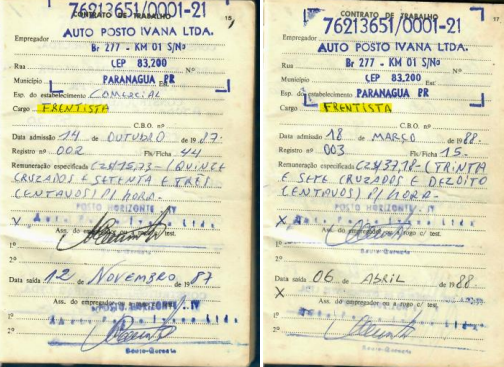 CONTRATO DE TRABALHO 15
76213651/0001-21
Empregador
AUTO POSTO IVANA LTDA.
Br 277 - KM 01 S/Nº
Rua CEP 83,200 Nº
Município PARANAGUA PR Est.
Esp. do estabelecimento COMERCIAL
Cargo FRENTISTA
C.B.O. nº
Data admissão 14 de OUTUBRO de 1987.
Registro nº 002 Fls/Ficha 44
Remuneração especificada CZ$15,73 - (QUINZE
CRUZADOS E SETENTA E TRES
CENTAVOS) P/ HORA.
POSTO HORIZONTE - IV
Auto Posto Ivana Ltda.
c/ test.
1º
2º
Data saída 12 de NOVEMBRO de 87
Ass. do empregador ou a rogo c/ test.
POSTO HORIZONTE - IV
Auto Posto Ivana Ltda.
1º
2º
CONTRATO DE TRABALHO 17
76213651/0001-21
Empregador
AUTO POSTO IVANA LTDA.
Br 277 - KM 01 S/Nº
Rua CEP 83,200 Nº
Município PARANAGUA PR Est.
Esp. do estabelecimento
Cargo FRENTISTA
C.B.O. nº
Data admissão 18 de MARÇO de 1988.
Registro nº 003 Fls/Ficha 15.
Remuneração especificada CZ$37,18 - (TRINTA
E SETE CRUZADOS E DEZOITO
CENTAVOS) P/ HORA.
POSTO HORIZONTE - IV
X
a rogo c/ test.
1º
2º
Data saída 06 de ABRIL de 1988.
X
Ass. do empregador ou a rogo c/ test.
POSTO HORIZONTE - IV
Auto Posto Ivana Ltda.
1º
2º